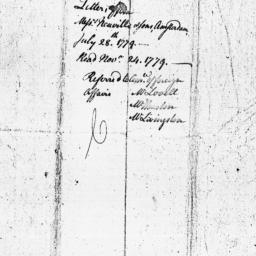 Letter, from
Messrs. Neuville & sons, Amsterdam
July 28.th 1779.—
Read Novr. 24. 1779.—
Referred to Comm. of foreign
Affairs Mr Lovell
Mr Houston
Mr Livingston